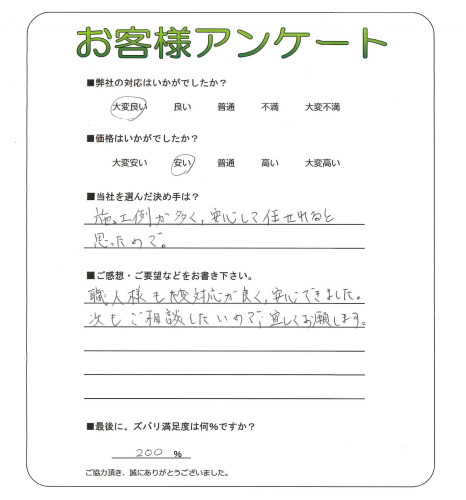 お客様アンケート
■弊社の対応はいかがでしたか？
大変良い 良い 普通 不満 大変不満
■価格はいかがでしたか？
大変安い 安い 普通 高い 大変高い
■当社を選んだ決め手は？
施工例が多く、安心して任せれると
思ったので。
■ご感想・ご要望などをお書き下さい。
職人様も大変対応が良く、安心できました。
次もご相談したいので、宜しくお願します。
■最後に、ズバリ満足度は何%ですか？
200 %
ご協力頂き、誠にありがとうございました。